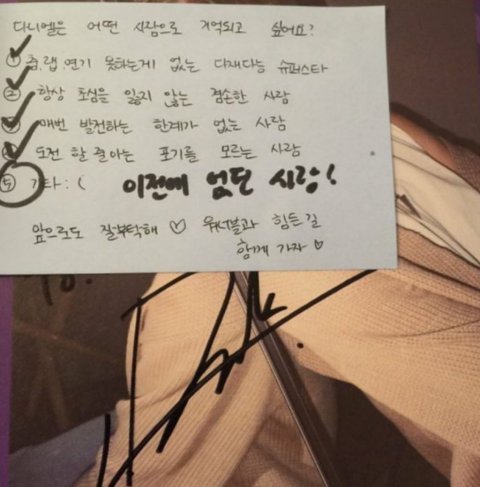 다니엘은 어떤 사람으로 기억되고 싶어요?
① 춤,랩,연기 못하는게 없는 다재다능 슈퍼스타
② 항상 초심을 잃지 않는 겸손한 사람
③ 매번 발전하는 한계가 없는 사람
④ 도전 할 줄 아는 포기를 모르는 사람
⑤ 기타 : ( 이전에 없던 사람!
앞으로도 잘부탁해 ♡ 워너블과 힘든길
함께 가자 ♡
To.